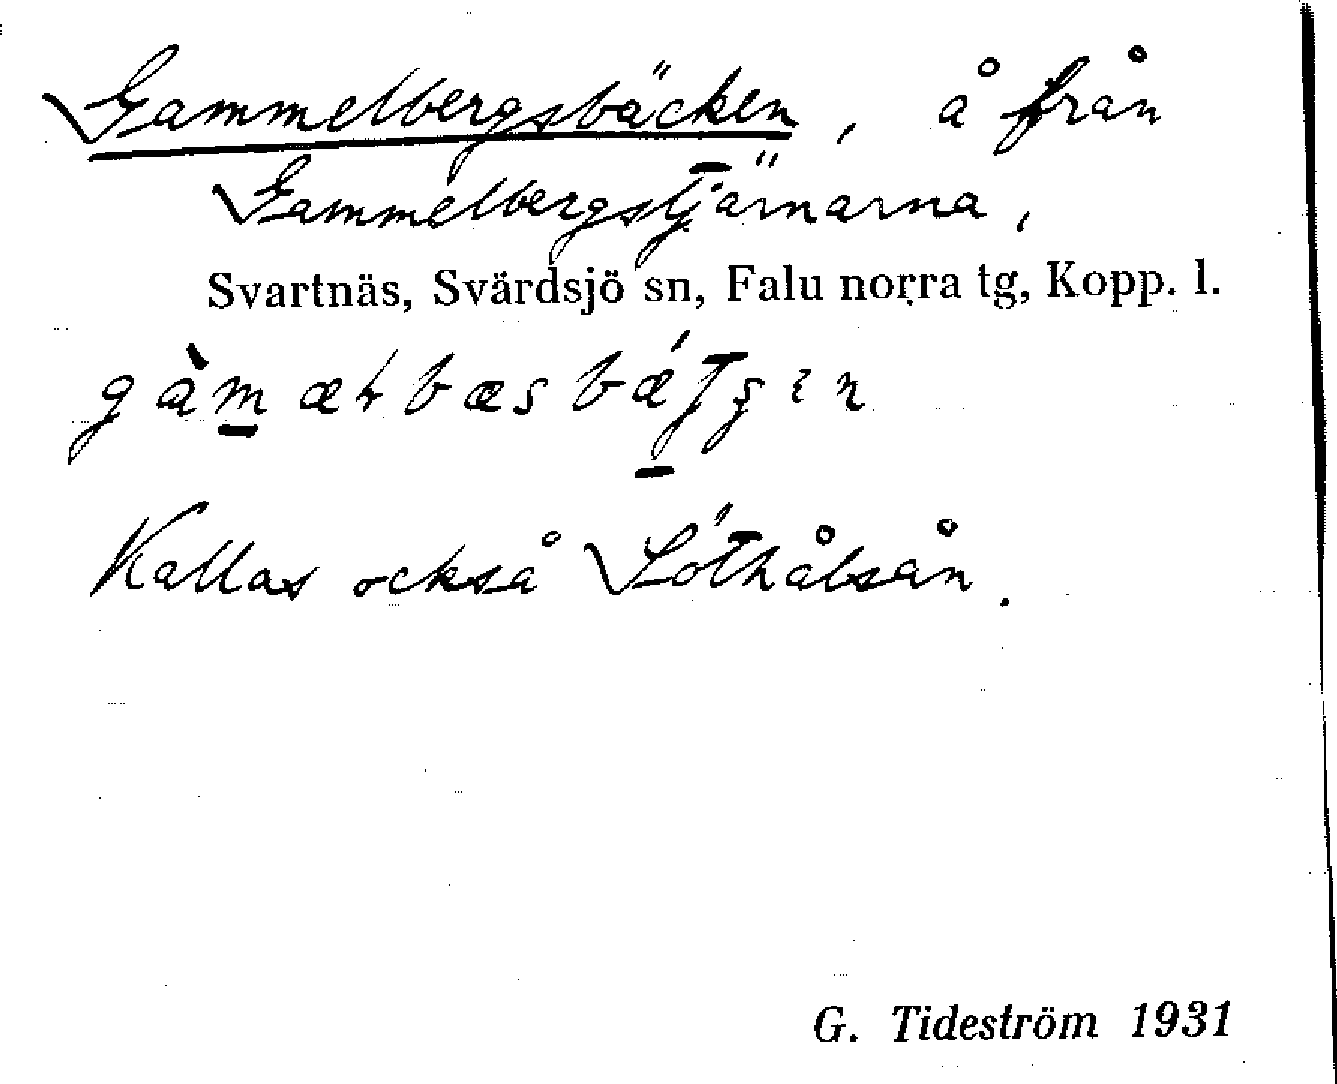 Gammelbergsbäcken, å från
Gammelbergstjärnarna,
Svartnäs, Svärdsjö sn, Falu norra tg, Kopp. l.
Kallas också Löthålsån.
G. Tideström 1931